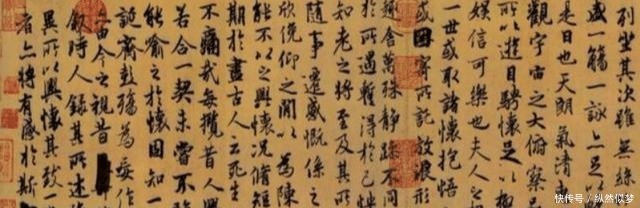 列坐其次雖無絲
盛一觴一詠亦足
是日也天朗氣清
觀宇宙之大俯察品
所以遊目騁懷足以極
娛信可樂也夫人之
一世或取諸懷抱悟
或因寄所託放浪形
趣舍萬殊靜躁不同
於所遇蹔得於己快
知老之將至及其所
隨事遷感慨係之
欣俛仰之閒以為陳
能不以之興懷況脩短
期於盡古人云死生
不痛哉每攬昔人興
若合一契未嘗不臨
能喻之於懷固知一
誕齊彭殤為妄作
由今之視昔
敘時人錄其所述
異所以興懷其致一
者亦將有感於斯
快传号 / 纵然似梦